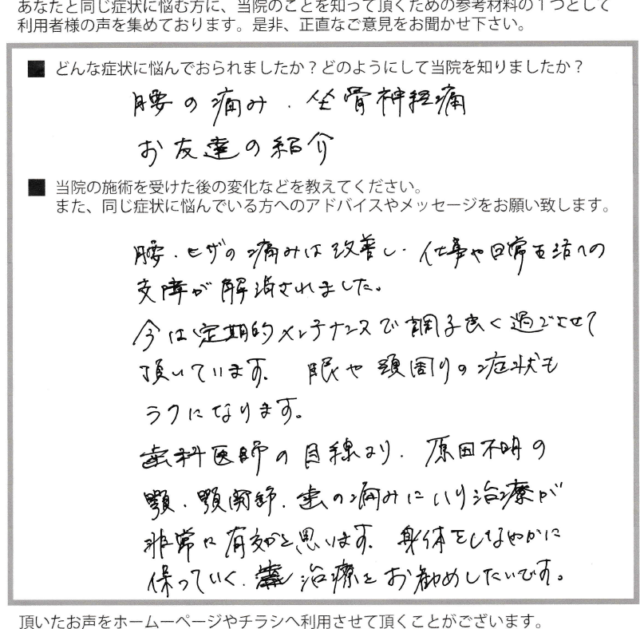 あなたと同じ症状に悩む方に、当院のことを知って頂くための参考材料の１つとして
利用者様の声を集めております。是非、正直なご意見をお聞かせ下さい。
■ どんな症状に悩んでおられましたか？どのようにして当院を知りましたか？
腰の痛み・坐骨神経痛
お友達の紹介
■ 当院の施術を受けた後の変化などを教えてください。
また、同じ症状に悩んでいる方へのアドバイスやメッセージをお願い致します。
腰・ヒザの痛みは改善し・仕事や日常生活への
支障が解消されました。
今は定期的メンテナンスで調子良く過ごさせて
頂いています。眼や頭周りの症状も
ラクになります。
歯科医師の目線より、原因不明の
顎・顎関節・歯の痛みに 治療が
非常に有効と思います。身体をしなやかに
保っていく 治療と お勧めしたいです。
頂いたお声をホームーページやチラシへ利用させて頂くことがございます。